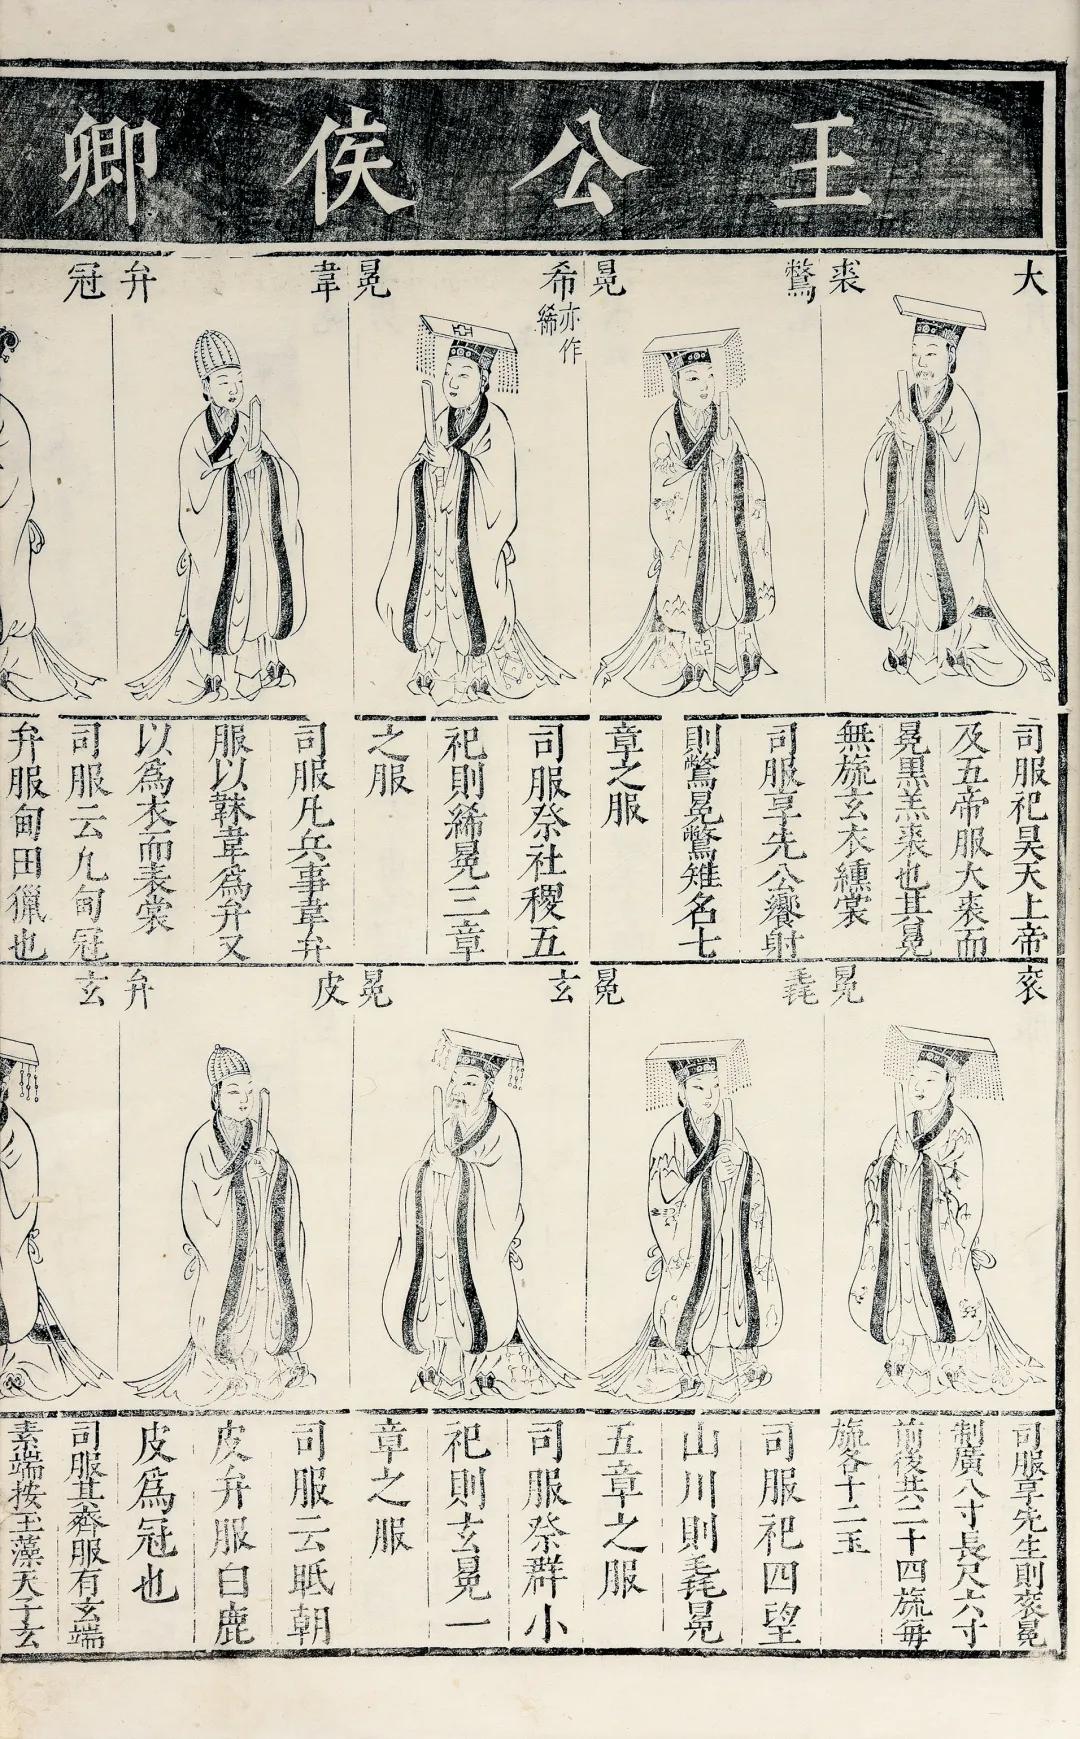 王公侯卿
大裘
鷩冕
希冕
亦作
絺
韋弁
冠
司服祀昊天上帝
及五帝服大裘而
冕黒羔裘也其冕
無旒玄衣纁裳
司服享先公饗射
則鷩冕鷩雉名七
章之服
司服祭社稷五
祀則絺冕三章
之服
司服凡兵事韋弁
服以韎韋爲弁又
以爲衣而素裳
司服云凡甸冠
弁服甸田獵也
衮冕
毳冕
玄冕
皮弁
玄
司服享先生則衮冕
制廣八寸長尺六寸
前後共二十四旒每
旒各十二玉
司服祀四望
山川則毳冕
五章之服
司服祭群小
祀則玄冕一
章之服
司服云眡朝
皮弁服白鹿
皮爲冠也
司服其齊服有玄端
素端按玉藻天子玄